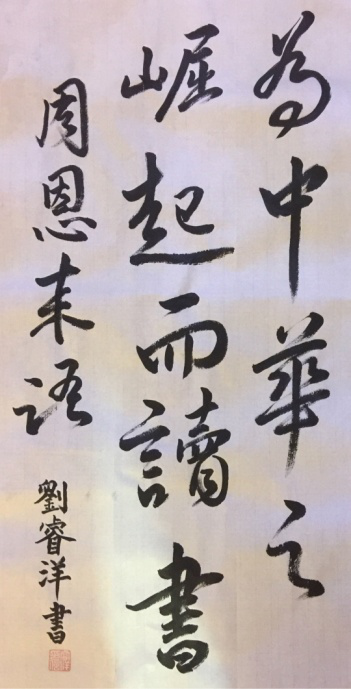 為中華之
崛起而讀書
周恩来語
劉睿洋書